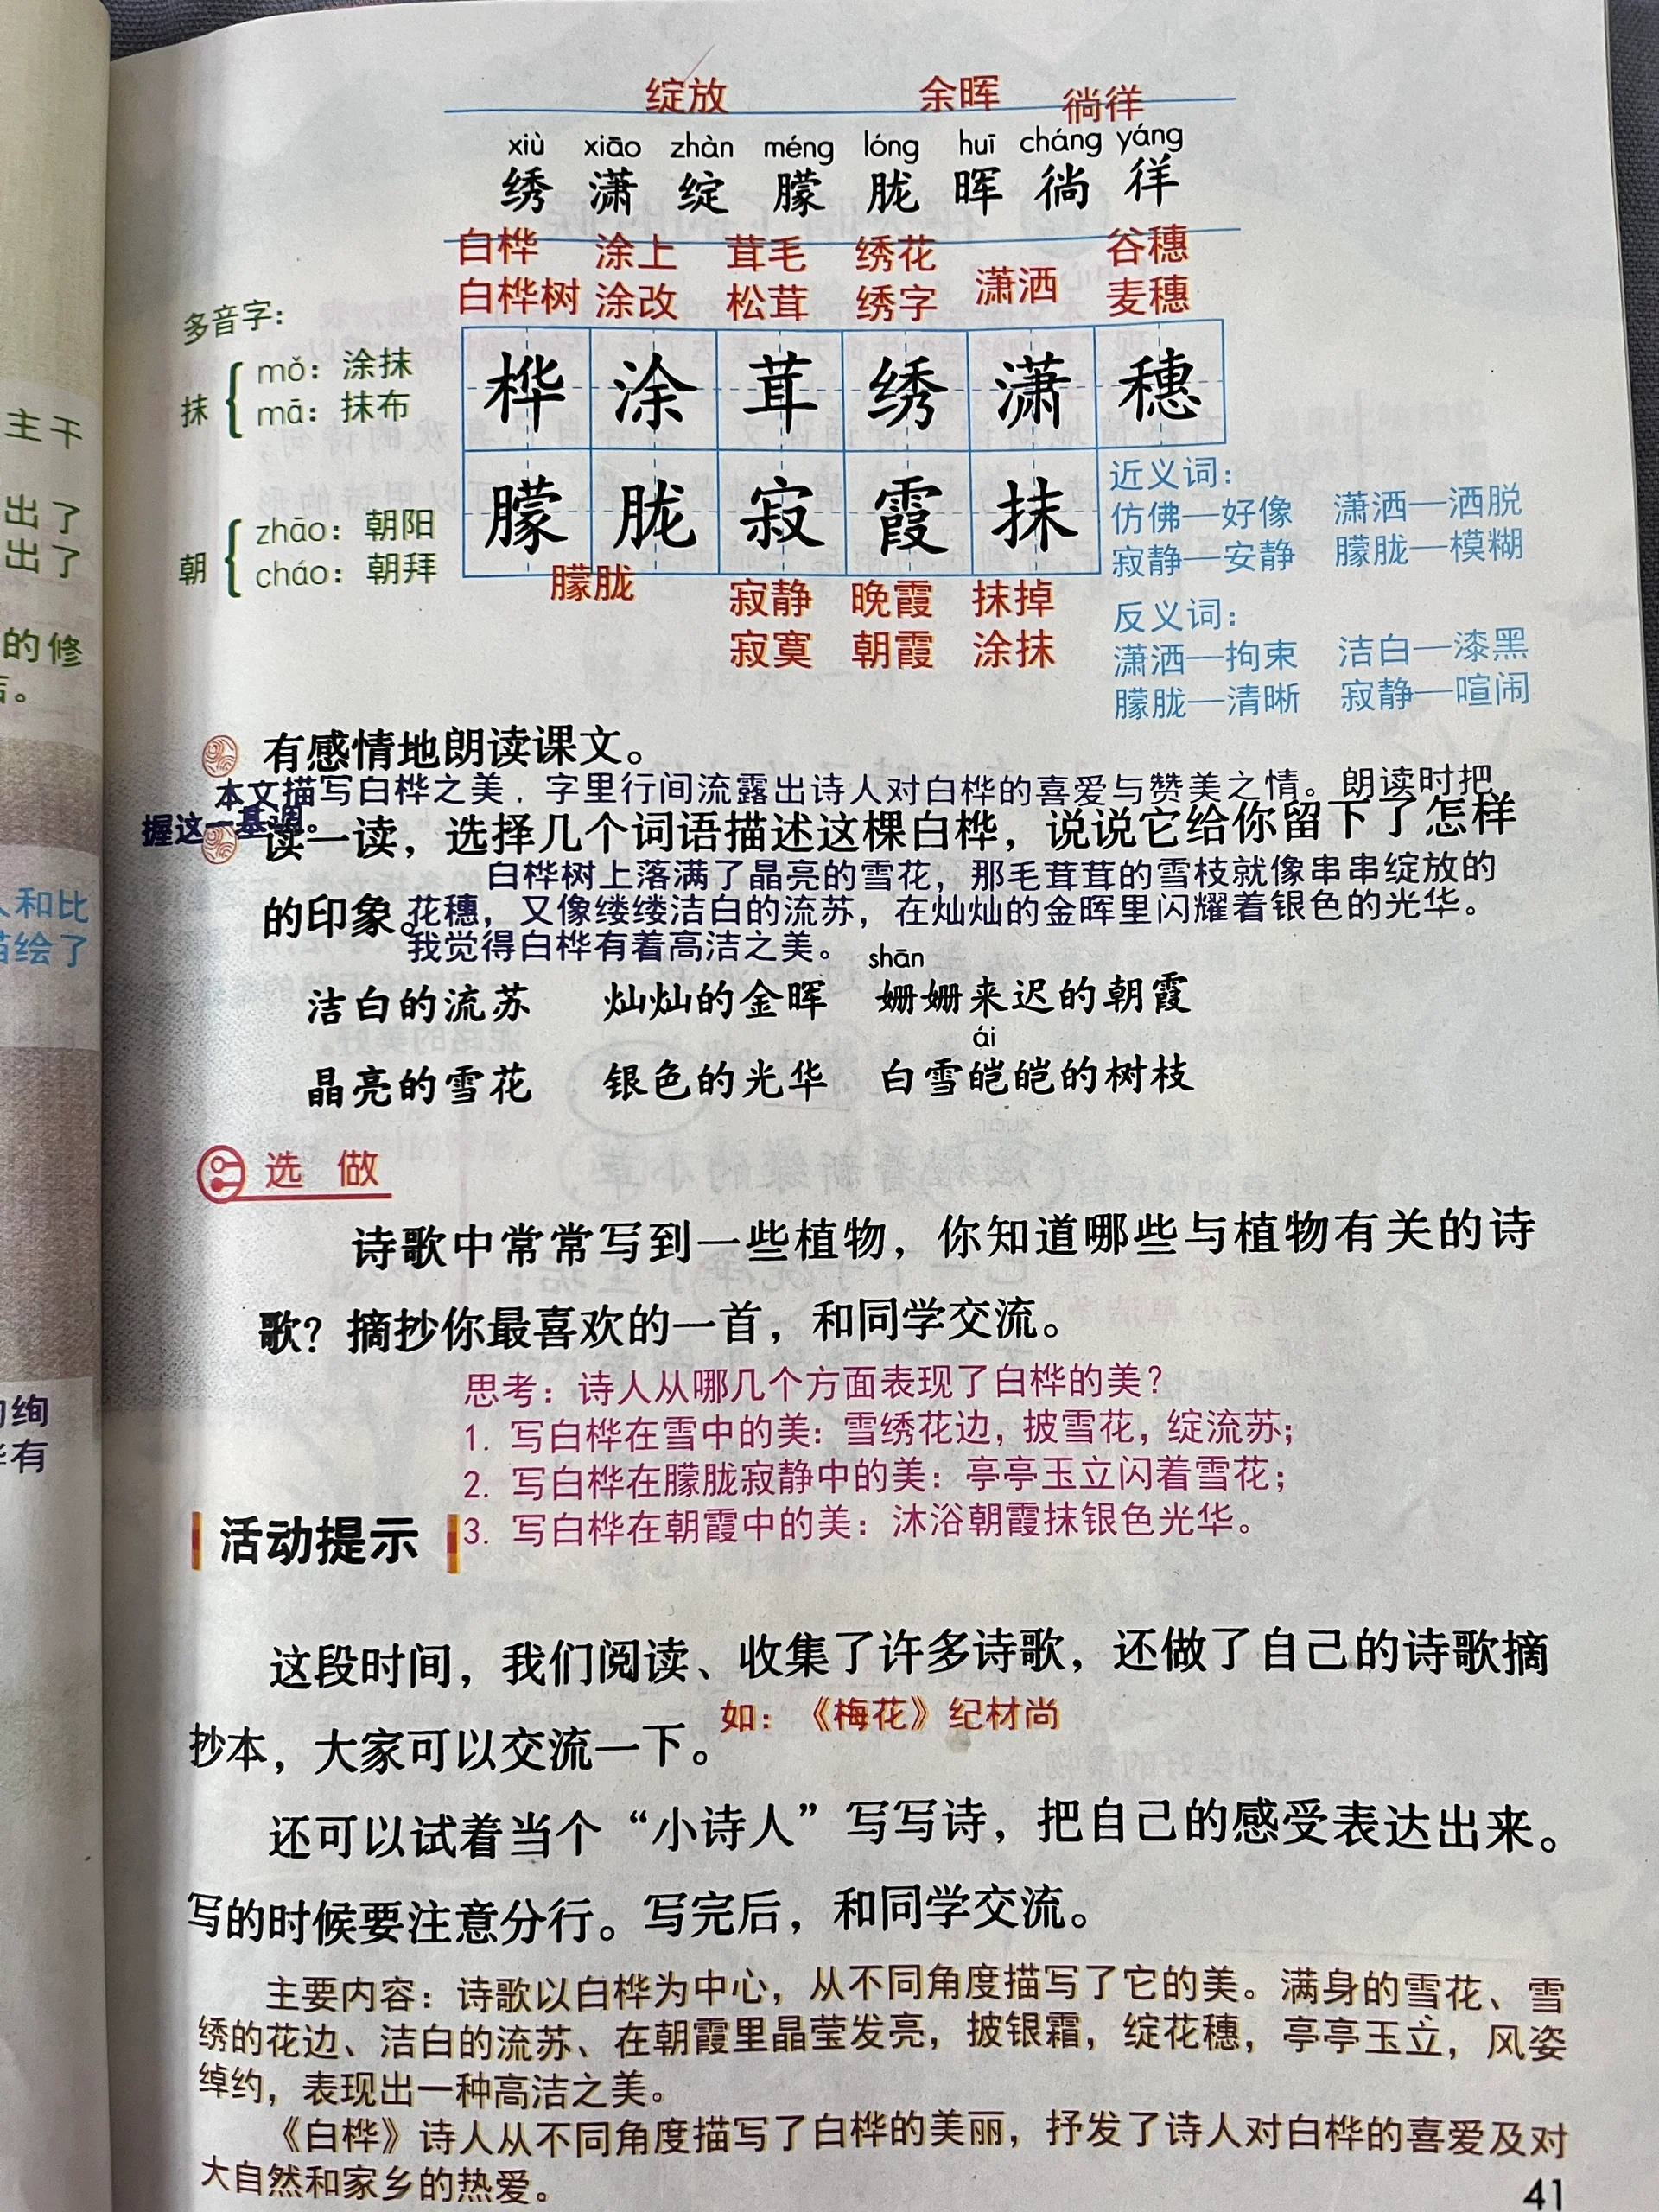 绽放 余晖 徜徉
xiù xiāo zhàn méng lóng huī cháng yáng
绣 潇 绽 朦 胧 晖 徜 徉
白桦 涂上 茸毛 绣花 谷穗
白桦树 涂改 松茸 绣字 潇洒 麦穗
多音字：
抹
mǒ：涂抹
mā：抹布
桦 涂 茸 绣 潇 穗
朝
zhāo：朝阳
cháo：朝拜
朦 胧 寂 霞 抹
朦胧 寂静 晚霞 抹掉
寂寞 朝霞 涂抹
近义词：
仿佛—好像 潇洒—洒脱
寂静—安静 朦胧—模糊
反义词：
潇洒—拘束 洁白—漆黑
朦胧—清晰 寂静—喧闹
有感情地朗读课文。
本文描写白桦之美，字里行间流露出诗人对白桦的喜爱与赞美之情。朗读时把
握这一基调。
读一读，选择几个词语描述这棵白桦，说说它给你留下了怎样
的印象。
白桦树上落满了晶亮的雪花，那毛茸茸的雪枝就像串串绽放的
花穗，又像缕缕洁白的流苏，在灿灿的金晖里闪耀着银色的光华。
我觉得白桦有着高洁之美。
shān
洁白的流苏 灿灿的金晖 姗姗来迟的朝霞
ái
晶亮的雪花 银色的光华 白雪皑皑的树枝
选 做
诗歌中常常写到一些植物，你知道哪些与植物有关的诗
歌？摘抄你最喜欢的一首，和同学交流。
思考：诗人从哪几个方面表现了白桦的美？
1. 写白桦在雪中的美：雪绣花边，披雪花，绽流苏；
2. 写白桦在朦胧寂静中的美：亭亭玉立闪着雪花；
3. 写白桦在朝霞中的美：沐浴朝霞抹银色光华。
活动提示
这段时间，我们阅读、收集了许多诗歌，还做了自己的诗歌摘
抄本，大家可以交流一下。
如：《梅花》纪材尚
还可以试着当个“小诗人”写写诗，把自己的感受表达出来。
写的时候要注意分行。写完后，和同学交流。
主要内容：诗歌以白桦为中心，从不同角度描写了它的美。满身的雪花、雪
绣的花边、洁白的流苏、在朝霞里晶莹发亮，披银霜，绽花穗，亭亭玉立，风姿
绰约，表现出一种高洁之美。
《白桦》诗人从不同角度描写了白桦的美丽，抒发了诗人对白桦的喜爱及对
大自然和家乡的热爱。
41
主干
出了
出了
的修
和比
描绘了
绚
有